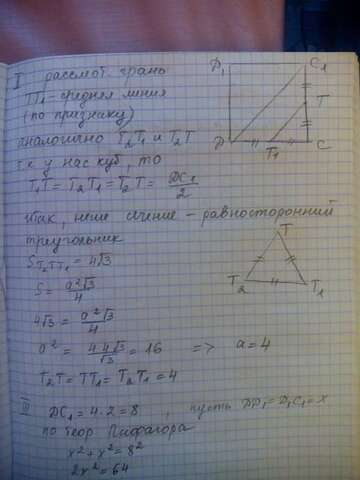 I рассмот. грань
TT₁ - средняя линия
(по признаку)
аналогично T₂T₁ и T₂T
т.к у нас куб, то
T₁T = T₂T₁ = T₂T = DC₁/2
Итак, наше сечение - равносторонний
треугольник
S T₂TT₁ = 4√3
S = a²√3/4
4√3 = a²√3/4
a² = 4·4√3/√3 = 16 => a = 4
T₂T = TT₁ = T₂T₁ = 4
III DC₁ = 4·2 = 8, пусть DD₁ = D₁C₁ = x
по теор Пифагора
x² + x² = 8²
2x² = 64
D₁ C₁
T
D T₁ C
T
T₂ T₁